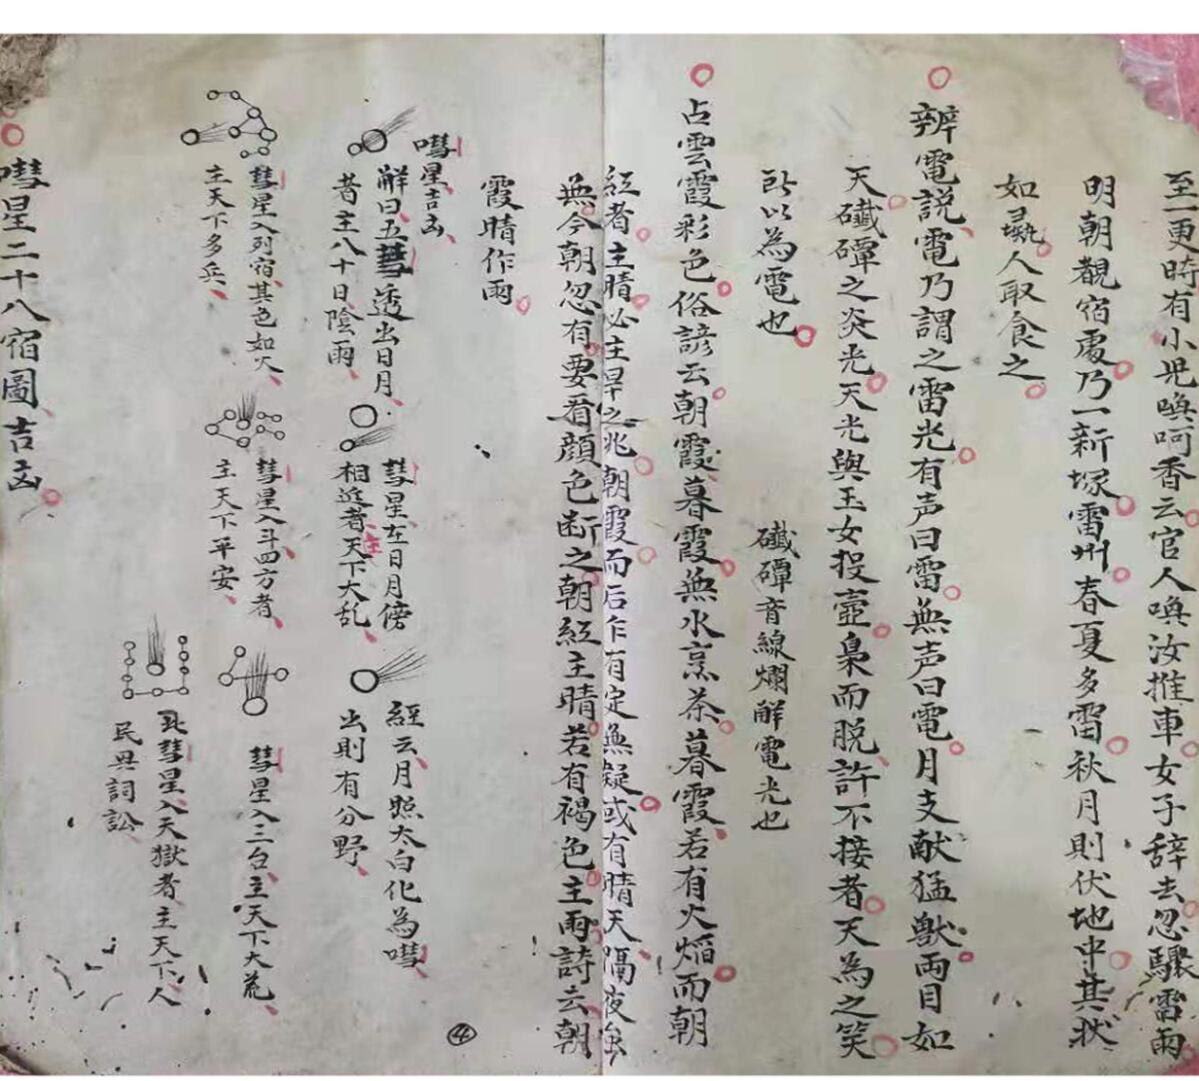 至一更時有小児喚呵香云官人喚汝推車女子辞去忽驟雷雨
明朝觀宿處乃一新塚雷州春夏多雷秋月則伏地中其狀
如彘人取食之
辨電説電乃謂之雷光有声曰雷無声曰電月支献猛獸両目如
天礮磹之炎光天光與玉女投壺梟而脱許不接者天為之笑
所以為電也
磹音線爛解電光也
占雲霞彩色俗諺云朝霞暮霞無水烹茶暮霞若有火焰而朝
紅者主晴必主旱之兆朝霞而后乍有定無疑或有晴天隔夜虽
無今朝忽有要看顔色断之朝紅主晴若有褐色主雨詩云朝
霞晴作雨
嘒星吉凶
解曰五彗透出日月
者主八十日陰雨
彗星在日月傍
相近者主天下大乱
經云月照太白化為嘒
出則有分野
彗星入列宿其色如火
主天下多兵
彗星入斗四方者
主天下平安
彗星入三台主天下大荒
彗星入天獄者主天下人
民興詞訟
嘒星二十八宿圖吉凶
④